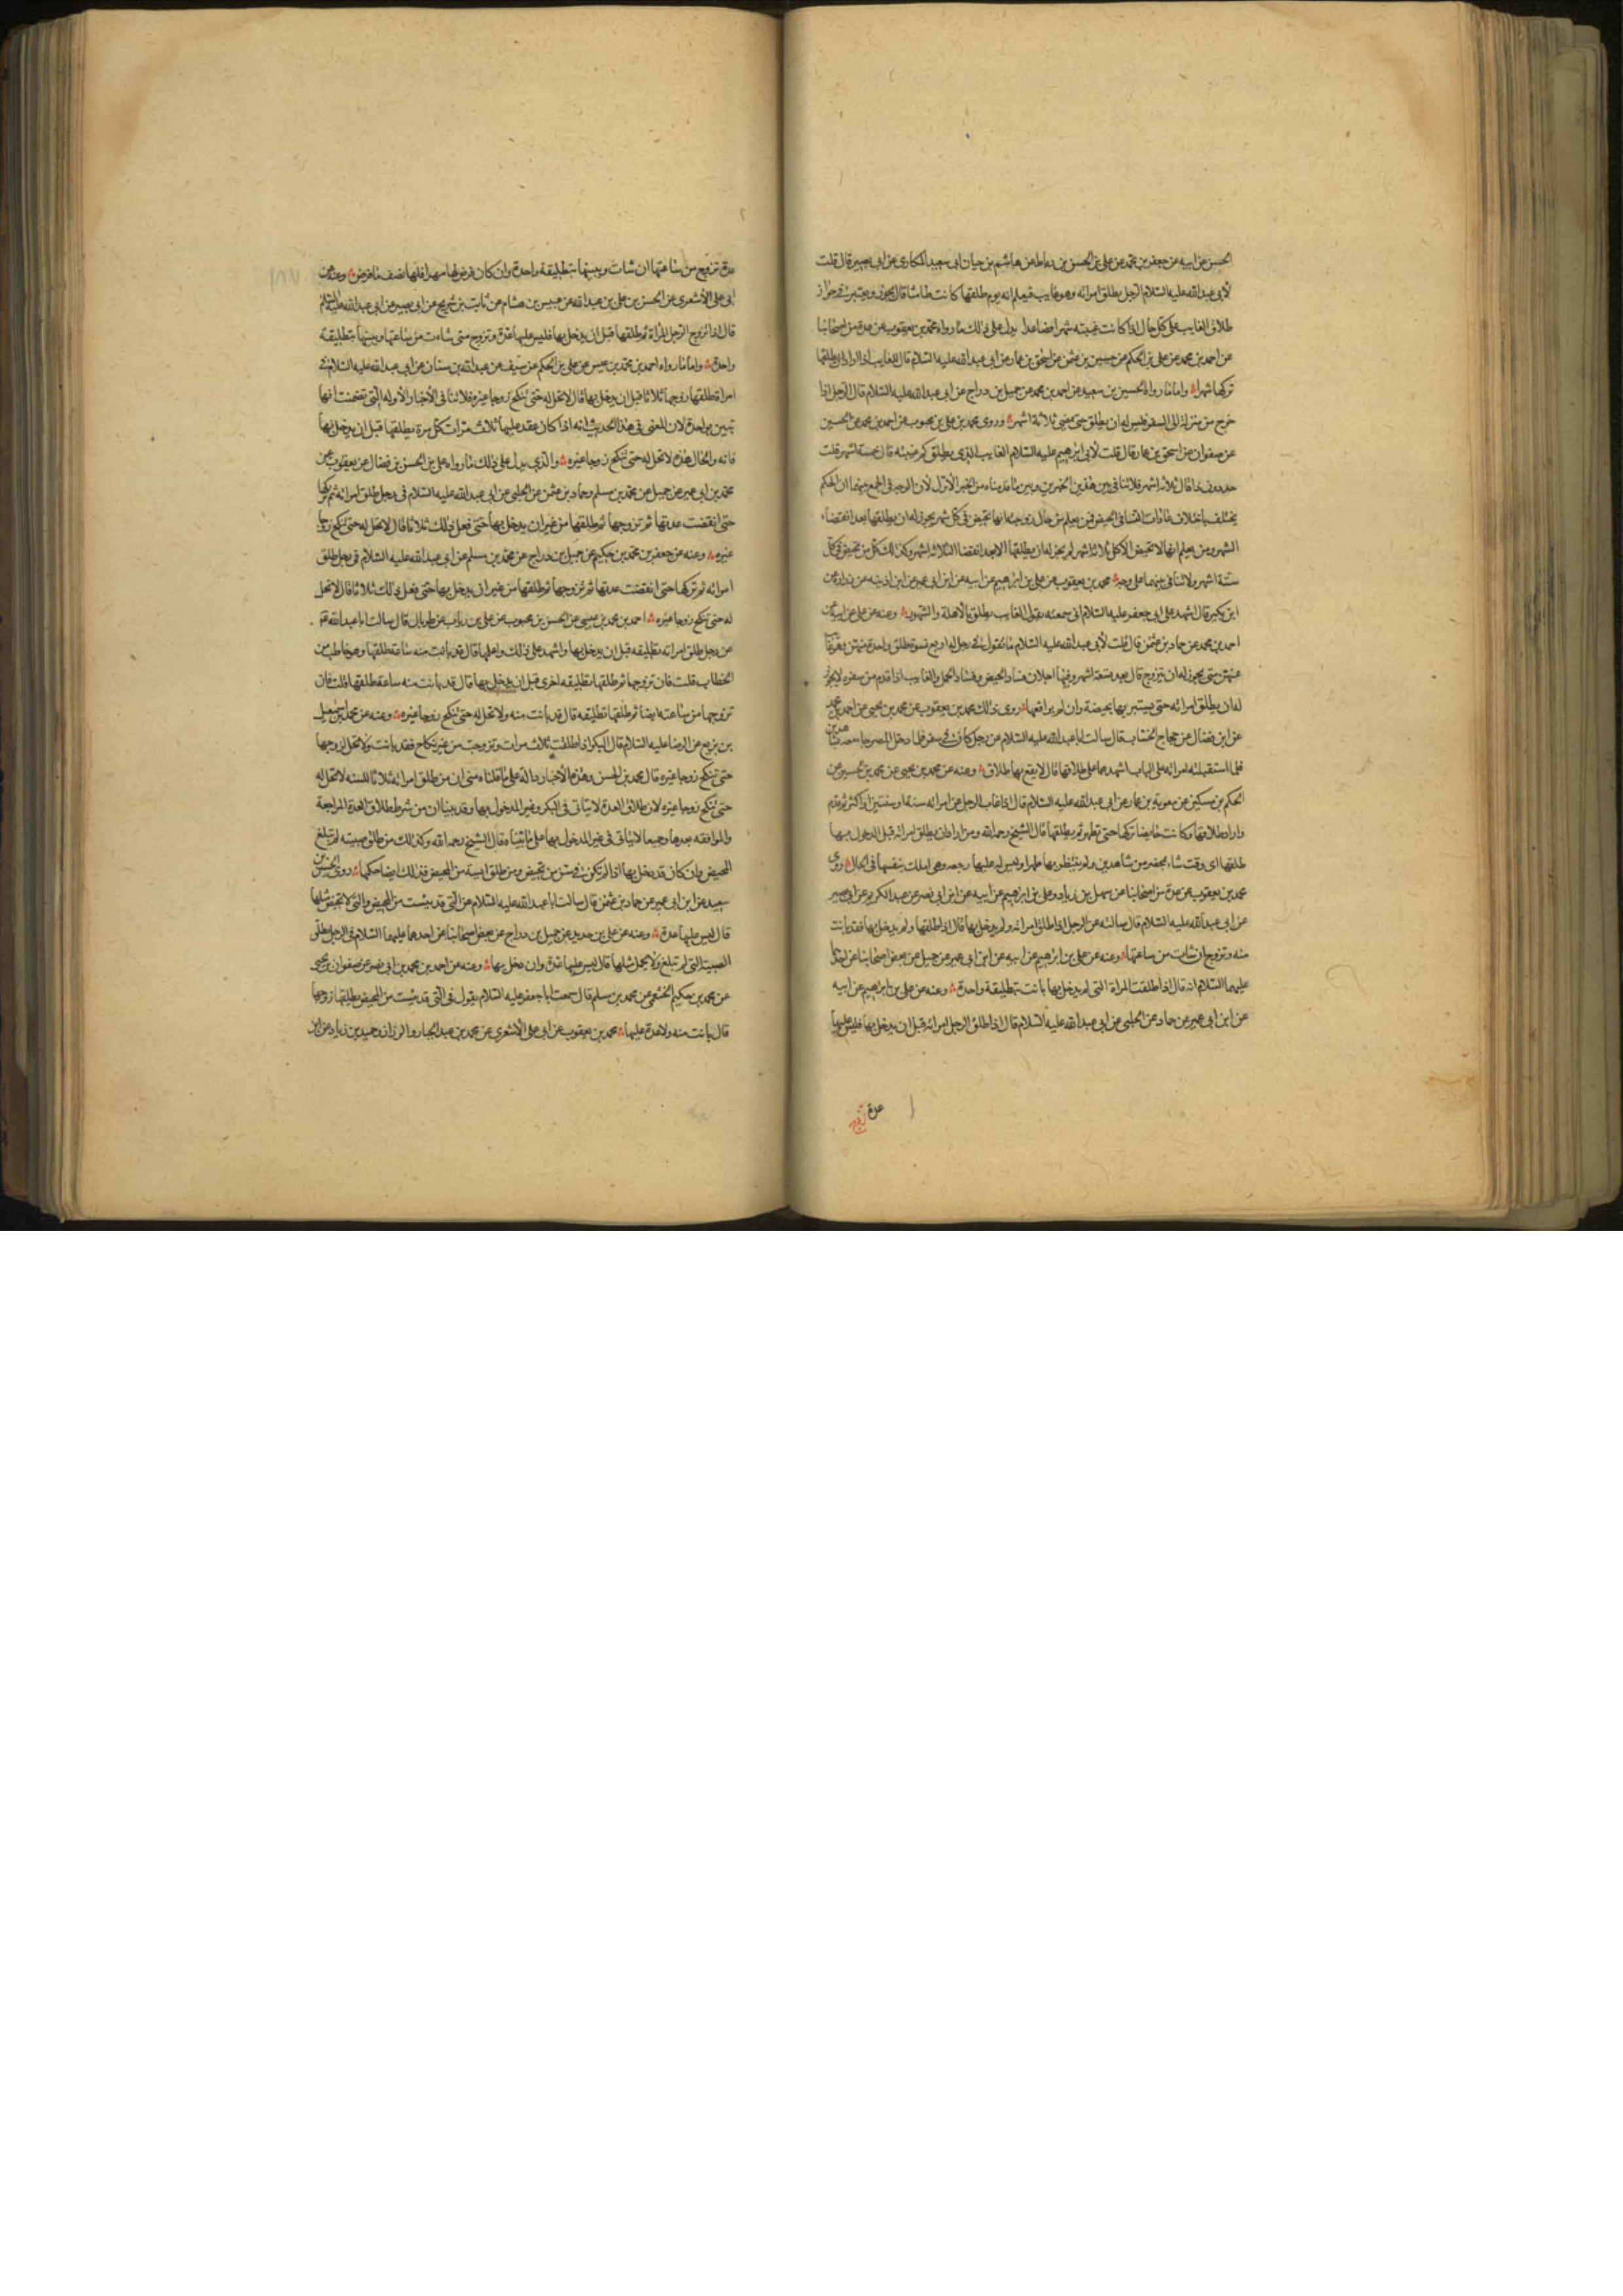 الحسن عن ابيه عن جعفر بن محمد عن علي بن الحسن بن رباط عن هاشم بن حيان ابي سعيد المكاري عن ابي بصير قال قلت
لأبي عبد الله عليه السلام الرجل يطلق امراته وهو غايب فيعلم انه يوم طلقها كانت طامثا قال يجوز ويعتبر في جواز
طلاق الغايب على كل حال اذا كانت غيبته شهرا فصاعدا يدل على ذلك ما رواه محمد بن يعقوب عن عدة من اصحابنا
عن احمد بن محمد عن علي بن الحكم عن حسين بن عثمن عن اسحق بن عمار عن ابي عبد الله عليه السلام قال الغايب اذا اراد ان يطلقها
تركها شهرا واما ما رواه الحسين بن سعيد عن احمد بن محمد عن جميل بن دراج عن ابي عبد الله عليه السلام قال الرجل اذا
خرج من منزله الى السفر فليس له ان يطلق حتى تمضي ثلاثة اشهر وروى محمد بن علي بن محبوب عن احمد بن محمد عن الحسين
عن صفوان عن اسحق بن عمار قال قلت لأبي ابرهيم عليه السلام الغايب الذي يطلق كم غيبته قال خمسة اشهر قلت
حد دون ذا قال ثلاثة اشهر فلا تنافي بين هذين الخبرين وبين ما قدمناه من الخبر الأول لأن الوجه في الجمع بينهما ان الحكم
يختلف باختلاف عادات النسا في الحيض فمن يعلم من حال زوجته انها تحيض في كل شهر يجوز له ان يطلقها بعد انقضاء
الشهر ومن يعلم انها لا تحيض الا كل ثلاثة اشهر لم يجز له ان يطلقها الا بعد انقضا الثلاثة اشهر وكذلك من تحيض في كل
ستة اشهر ولا تنافي بينهما على وجه محمد بن يعقوب عن علي بن ابرهيم عن ابيه عن ابن ابي عمير عن ابن اذينه عن زرارة عن
ابن بكير قال اشهد على ابي جعفر عليه السلام اني سمعته يقول الغايب يطلق بالاهلة والشهور وعنه عن علي عن ابيه عن
احمد بن محمد عن حماد بن عثمن قال قلت لأبي عبد الله عليه السلام ما تقول في رجل له اربع نسوة طلق واحدة منهن وهو غايب
عنهن متى يجوز له ان يتزوج قال بعد تسعة اشهر وفيها اجلان فساد الحيض وفساد الحمل والغايب اذا قدم من سفره لا يجوز
له ان يطلق امراته حتى يستبريها بحيضة وان لم يواقعها روى ذلك محمد بن يعقوب عن محمد بن يحيى عن احمد بن محمد
عن ابن فضال عن حجاج الخشاب قال سالت ابا عبد الله عليه السلام عن رجل كان في سفر فلما دخل المصر جا معه بشاهدين
فلما استقبلته امراته على الباب اشهدهما على طلاقها قال لا يقع بها طلاق وعنه عن محمد بن يحيى عن محمد بن الحسين عن
الحكم بن مسكين عن معوية بن عمار عن ابي عبد الله عليه السلام قال اذا غاب الرجل عن امراته سنة او سنتين او اكثر ثم قدم
واراد طلاقها وكانت حايضا تركها حتى تطهر ثم يطلقها قال الشيخ رحمه الله ومن اراد ان يطلق امراته قبل الدخول بها
طلقها اي وقت شاء بمحضر من شاهدين ولم ينتظر بها طهرا وليس له عليها رجعه وهي املك بنفسها في الحال روى
محمد بن يعقوب عن عدة من اصحابنا عن سهل بن زياد وعلي بن ابرهيم عن ابيه عن ابن ابي نصر عن عبد الكريم عن ابي بصير
عن ابي عبد الله عليه السلام قال سالته عن الرجل اذا طلق امراته ولم يدخل بها قال اذا طلقها ولم يدخل بها فقد بانت
منه وتزوج ان شات من ساعتها وعنه عن علي بن ابرهيم عن ابيه عن ابن ابي عمير عن جميل عن بعض اصحابنا عن احدهما
عليهما السلام انه قال اذا طلقت المراة التي لم يدخل بها بانت بتطليقة واحدة وعنه عن علي بن ابراهيم عن ابيه
عن ابن ابي عمير عن حماد عن الحلبي عن ابي عبد الله عليه السلام قال اذا طلق الرجل امراته قبل ان يدخل بها فليس عليها
عدة
عدة تزوج من ساعتها ان شات ويبينها بتطليقة واحدة وان كان فرض لها مهرا فلها نصف ما فرض وعنه عن
ابي علي الأشعري عن الحسن بن علي بن عبد الله عن عبيس بن هشام عن ثابت بن شريح عن ابي بصير عن ابي عبد الله عليه السلام
قال اذا تزوج الرجل المراة ثم طلقها قبل ان يدخل بها فليس عليها عدة وتزوج متى شاءت من ساعتها ويبينها بتطليقة
واحدة واما ما رواه احمد بن محمد بن عيسى عن علي بن الحكم عن سيف عن عبد الله بن سنان عن ابي عبد الله عليه السلام في
امراة طلقها زوجها ثلاثا قبل ان يدخل بها قال لا تحل له حتى تنكح زوجا غيره فلا تنافي الأخبار الأوله التي تضمنت انها
تبين بواحدة لان المعنى في هذا الحديث انه اذا كان عقد عليها ثلاث مرات كل مرة يطلقها قبل ان يدخل بها
فانه والحال هذه لا تحل له حتى تنكح زوجا غيره والذي يدل على ذلك ما رواه علي بن الحسن بن فضال عن يعقوب عن
محمد بن ابي عمير عن جميل عن محمد بن مسلم وحماد بن عثمن عن الحلبي عن ابي عبد الله عليه السلام في رجل طلق امراته ثم تركها
حتى انقضت عدتها ثم تزوجها ثم طلقها من غير ان يدخل بها حتى فعل ذلك ثلاثا قال لا تحل له حتى تنكح زوجا
غيره وعنه عن جعفر بن محمد بن حكيم عن جميل بن دراج عن محمد بن مسلم عن ابي عبد الله عليه السلام في رجل طلق
امراته ثم تركها حتى انقضت عدتها ثم تزوجها ثم طلقها من غير ان يدخل بها حتى فعل ذلك ثلاثا قال لا تحل
له حتى تنكح زوجا غيره احمد بن محمد بن عيسى عن الحسن بن محبوب عن علي بن رياب عن طربال قال سالت ابا عبد الله
عن رجل طلق امراته تطليقه قبل ان يدخل بها واشهد على ذلك واعلمها قال قد بانت منه ساعة طلقها وهو خاطب من
الخطاب قلت فان تزوجها ثم طلقها تطليقه اخرى قبل ان يدخل بها قال قد بانت منه ساعة طلقها قلت فان
تزوجها من ساعته ايضا ثم طلقها تطليقه قال قد بانت منه ولا تحل له حتى تنكح زوجا غيره وعنه عن محمد بن اسمعيل
بن بزيع عن الرضا عليه السلام قال البكر اذا طلقت ثلاث مرات وتزوجت من غير نكاح فقد بانت ولا تحل لزوجها
حتى تنكح زوجا غيره قال محمد بن الحسن وهذه الأخبار دالة على ما قلناه من ان من طلق امراته ثلاثا للسنه لا تحل له
حتى تنكح زوجا غيره لان طلاق العدة لا يتاتى في البكر وغير المدخول بها وقد بينا ان من شرط طلاق العدة المراجعة
والمواقعه بعدها وجميعا لا يتاتى في غير المدخول بها على ما بيناه قال الشيخ رحمه الله وكذلك من طلق صبيته لم تبلغ
المحيض وان كان قد دخل بها اذا لم تكن في سن من تحيض ومن طلق ايسة من المحيض فذلك ايضا حكمها روى الحسين بن
سعيد عن ابن ابي عمير عن حماد بن عثمن قال سالت ابا عبد الله عليه السلام عن التي قد يئست من المحيض والتي لا تحيض مثلها
قال ليس عليها عدة وعنه عن علي بن حديد عن جميل بن دراج عن بعض اصحابنا عن احدهما عليهما السلام في الرجل يطلق
الصبية التي لم تبلغ ولا يحمل مثلها قال ليس عليها عدة وان دخل بها وعنه عن احمد بن محمد بن ابي نصر عن صفوان بن يحيى
عن محمد بن حكيم الخثعمي عن محمد بن مسلم قال سمعت ابا جعفر عليه السلام يقول في التي قد يئست من المحيض يطلقها زوجها
قال بانت منه ولا عدة عليها محمد بن يعقوب عن ابي علي الأشعري عن محمد بن عبد الجبار والرزاز وحميد بن زياد عن ابن